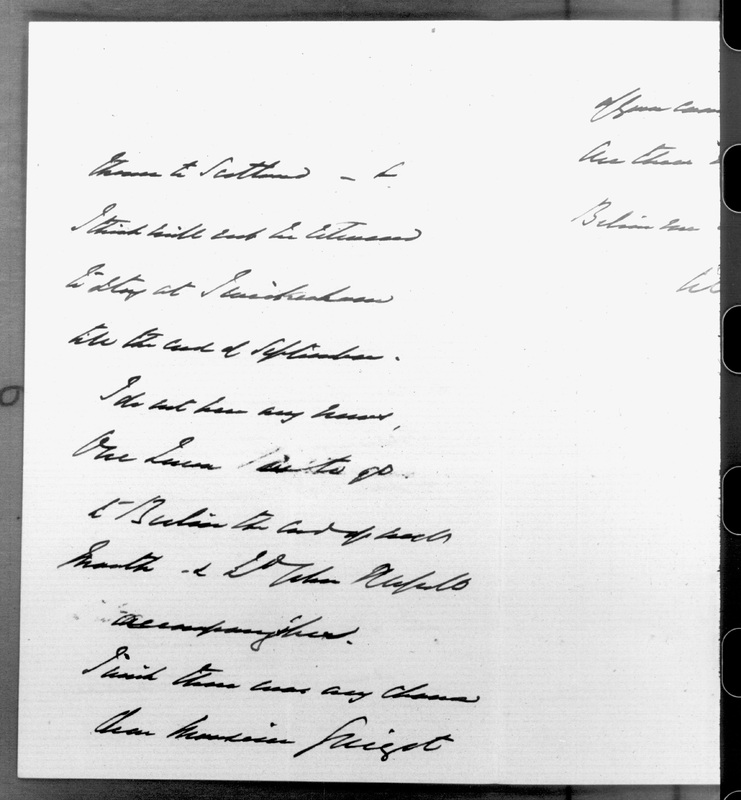 thence to Scotland — &
I think will not be returned
to stay at Twickenham
till the end of September.
I do not hear any news,
Our Queen is to go
to Berlin the end of next
Month & Ld John Russell
accompanies her.
I wish there was any chance
dear Monsieur Guizot
of your
Are there
Believe me